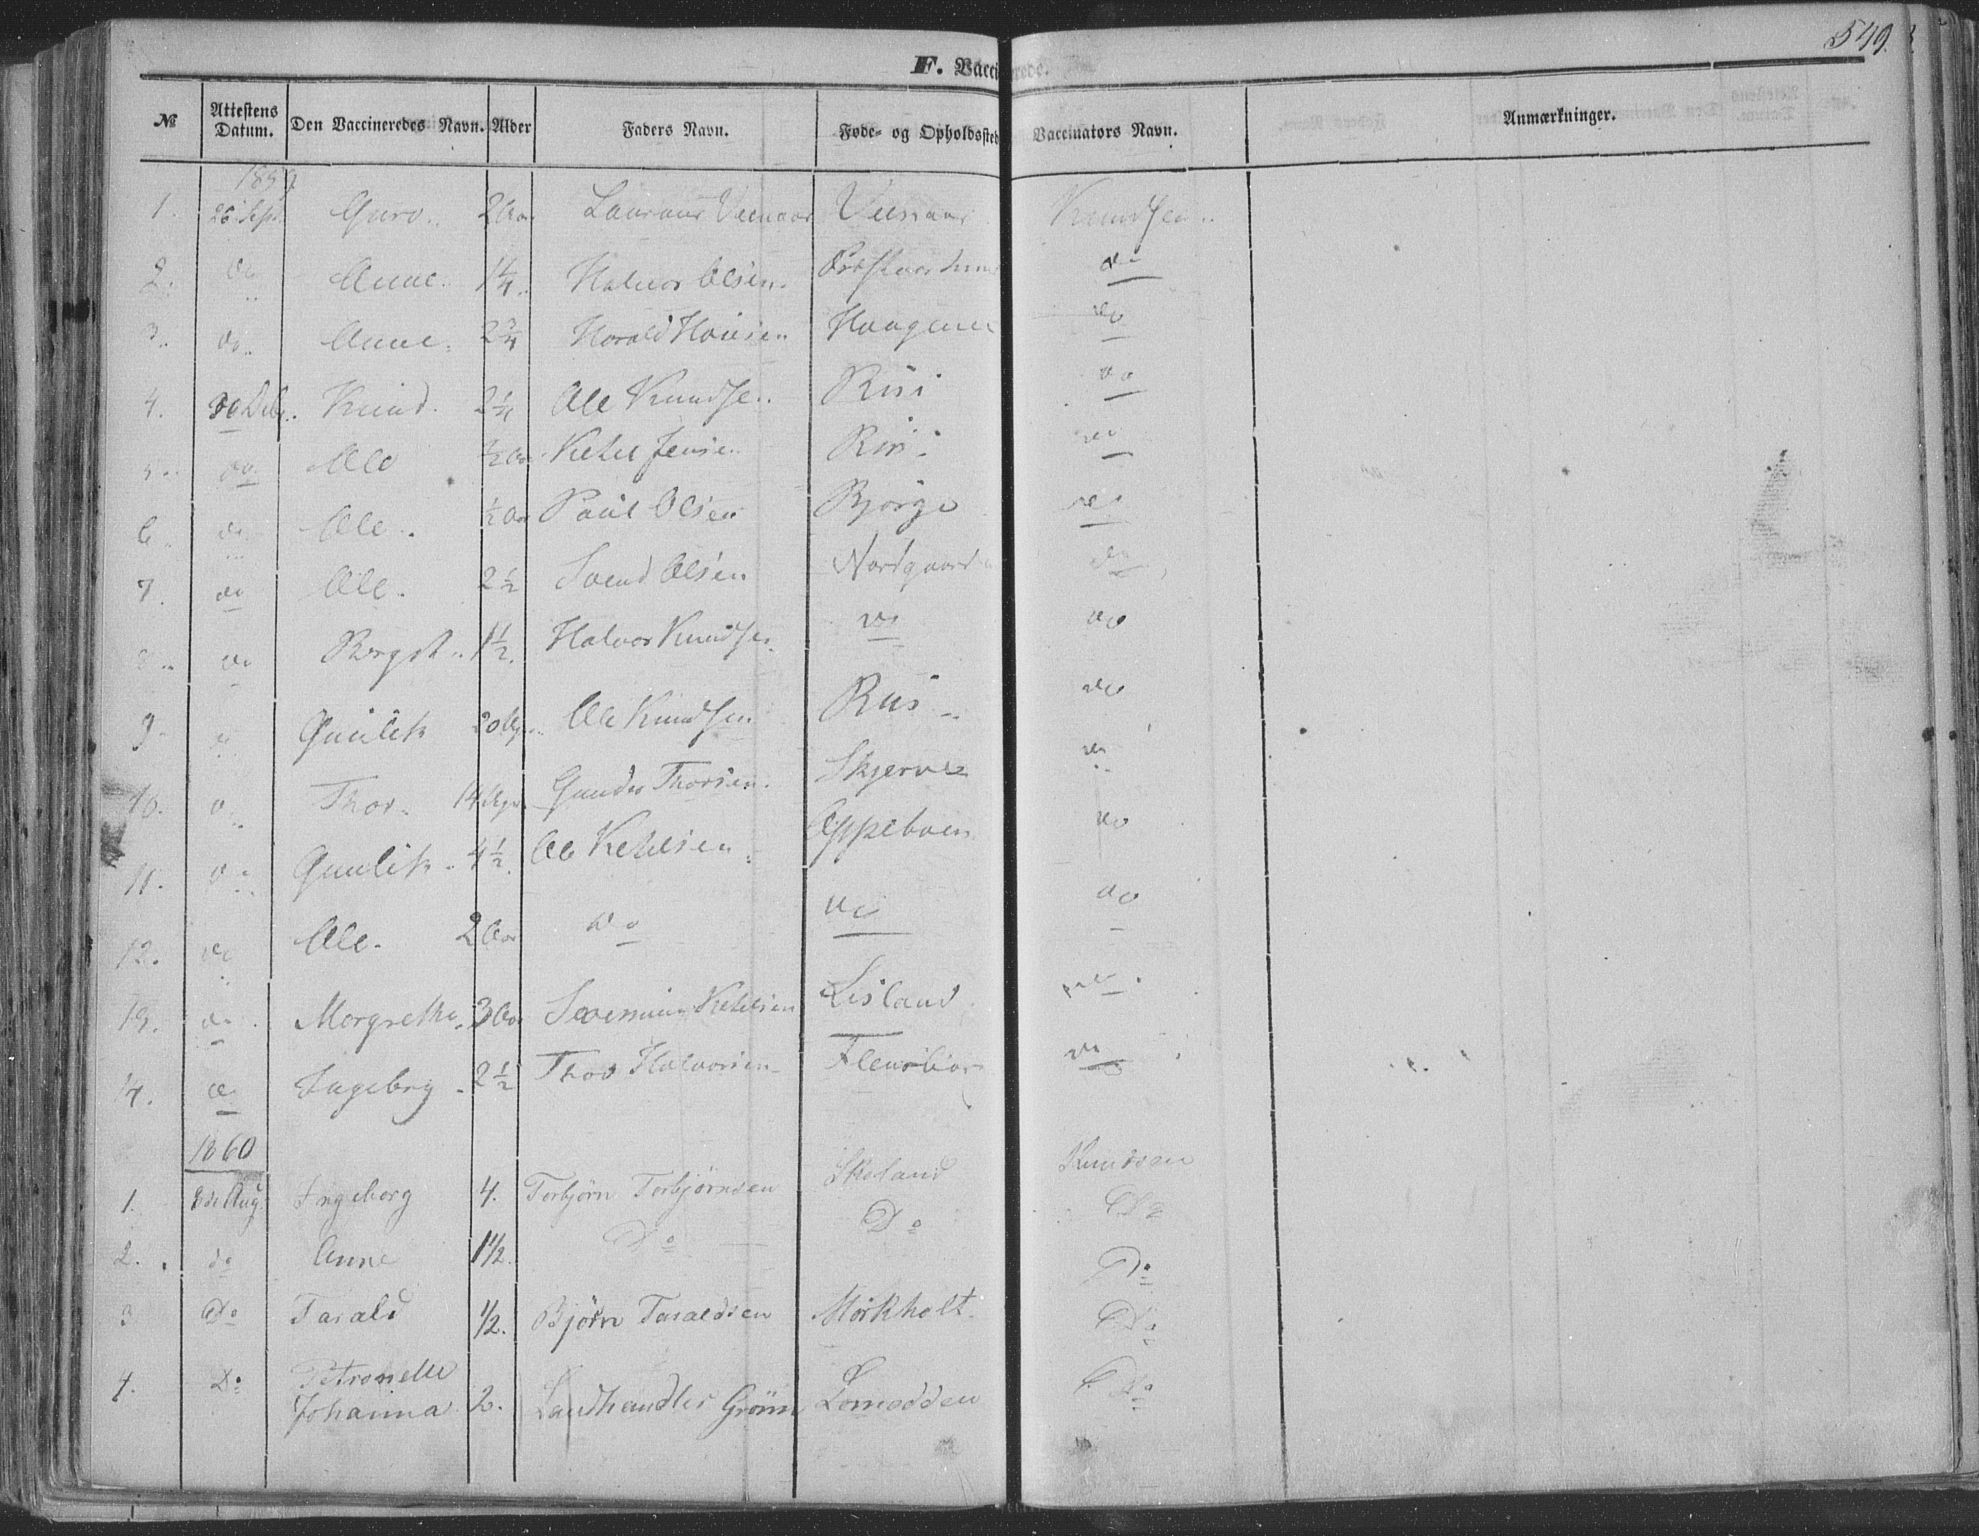 549.
F. Vaccinerede.
№ Attestens Datum. Den Vaccineredes Navn. Alder Faders Navn. Føde- og Opholdssted Vaccinators Navn. Anmærkninger.
1859
1. 26 Sept. Guro.. 2 Aar Knudsen..
2. do Anne. 1¼. Halvor Olsen. do
3. do.. Anne. 2¾ Harald Hansen Haugene do
4. 30 Knud. 2¼ Ole Knudsen. Riis do
5.. do Ole ¾ Aar Ketel Jensen Riis. do
6. do Ole. ½ Aar Paul Olsen Bjørge do
7. do Ole. 2½ Svend Olsen Nordgaard do
8.. do Bergit.. 1½. Halvor Knudsen. do do
9. do Gunlek 20 Ole Knudsen Riis.. do
10. do Thor. 14 Gunder Thorsen. Skjervee do
11. do Gunlik. 4½. Ole Ketelsen. Eppeboen do
12. do Ole. 2 Aar do do do
13. do. Morgrethe. 3 Aar Ketelsen Lisland do.
14. do Ingebrg. 2½ Thov Halvorsen do
1860
1. Aug. Ingeborg 4. Torbjørn Torbjørnsen Skoland Knudsen
2.. do Anne 1½. Do Do Do
Do
3 Do Tarald ½. Bjørn Taraldsen Mørkholt. Do
4. Do Petronelle
Johanna 2. Landhandler Grønn Lomodden Do